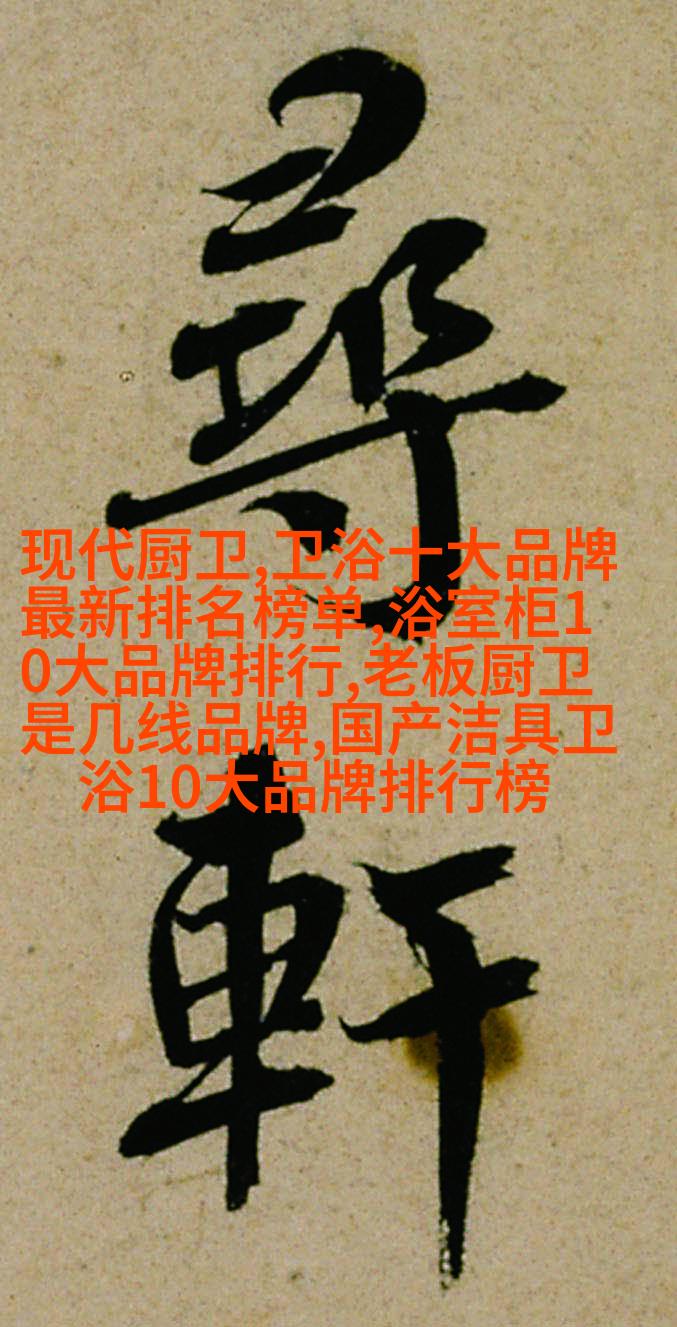 尋
軒
现代厨卫,卫浴十大品牌
最新排名榜单,浴室柜1
0大品牌排行,老板厨卫
是几线品牌,国产洁具卫
浴10大品牌排行榜